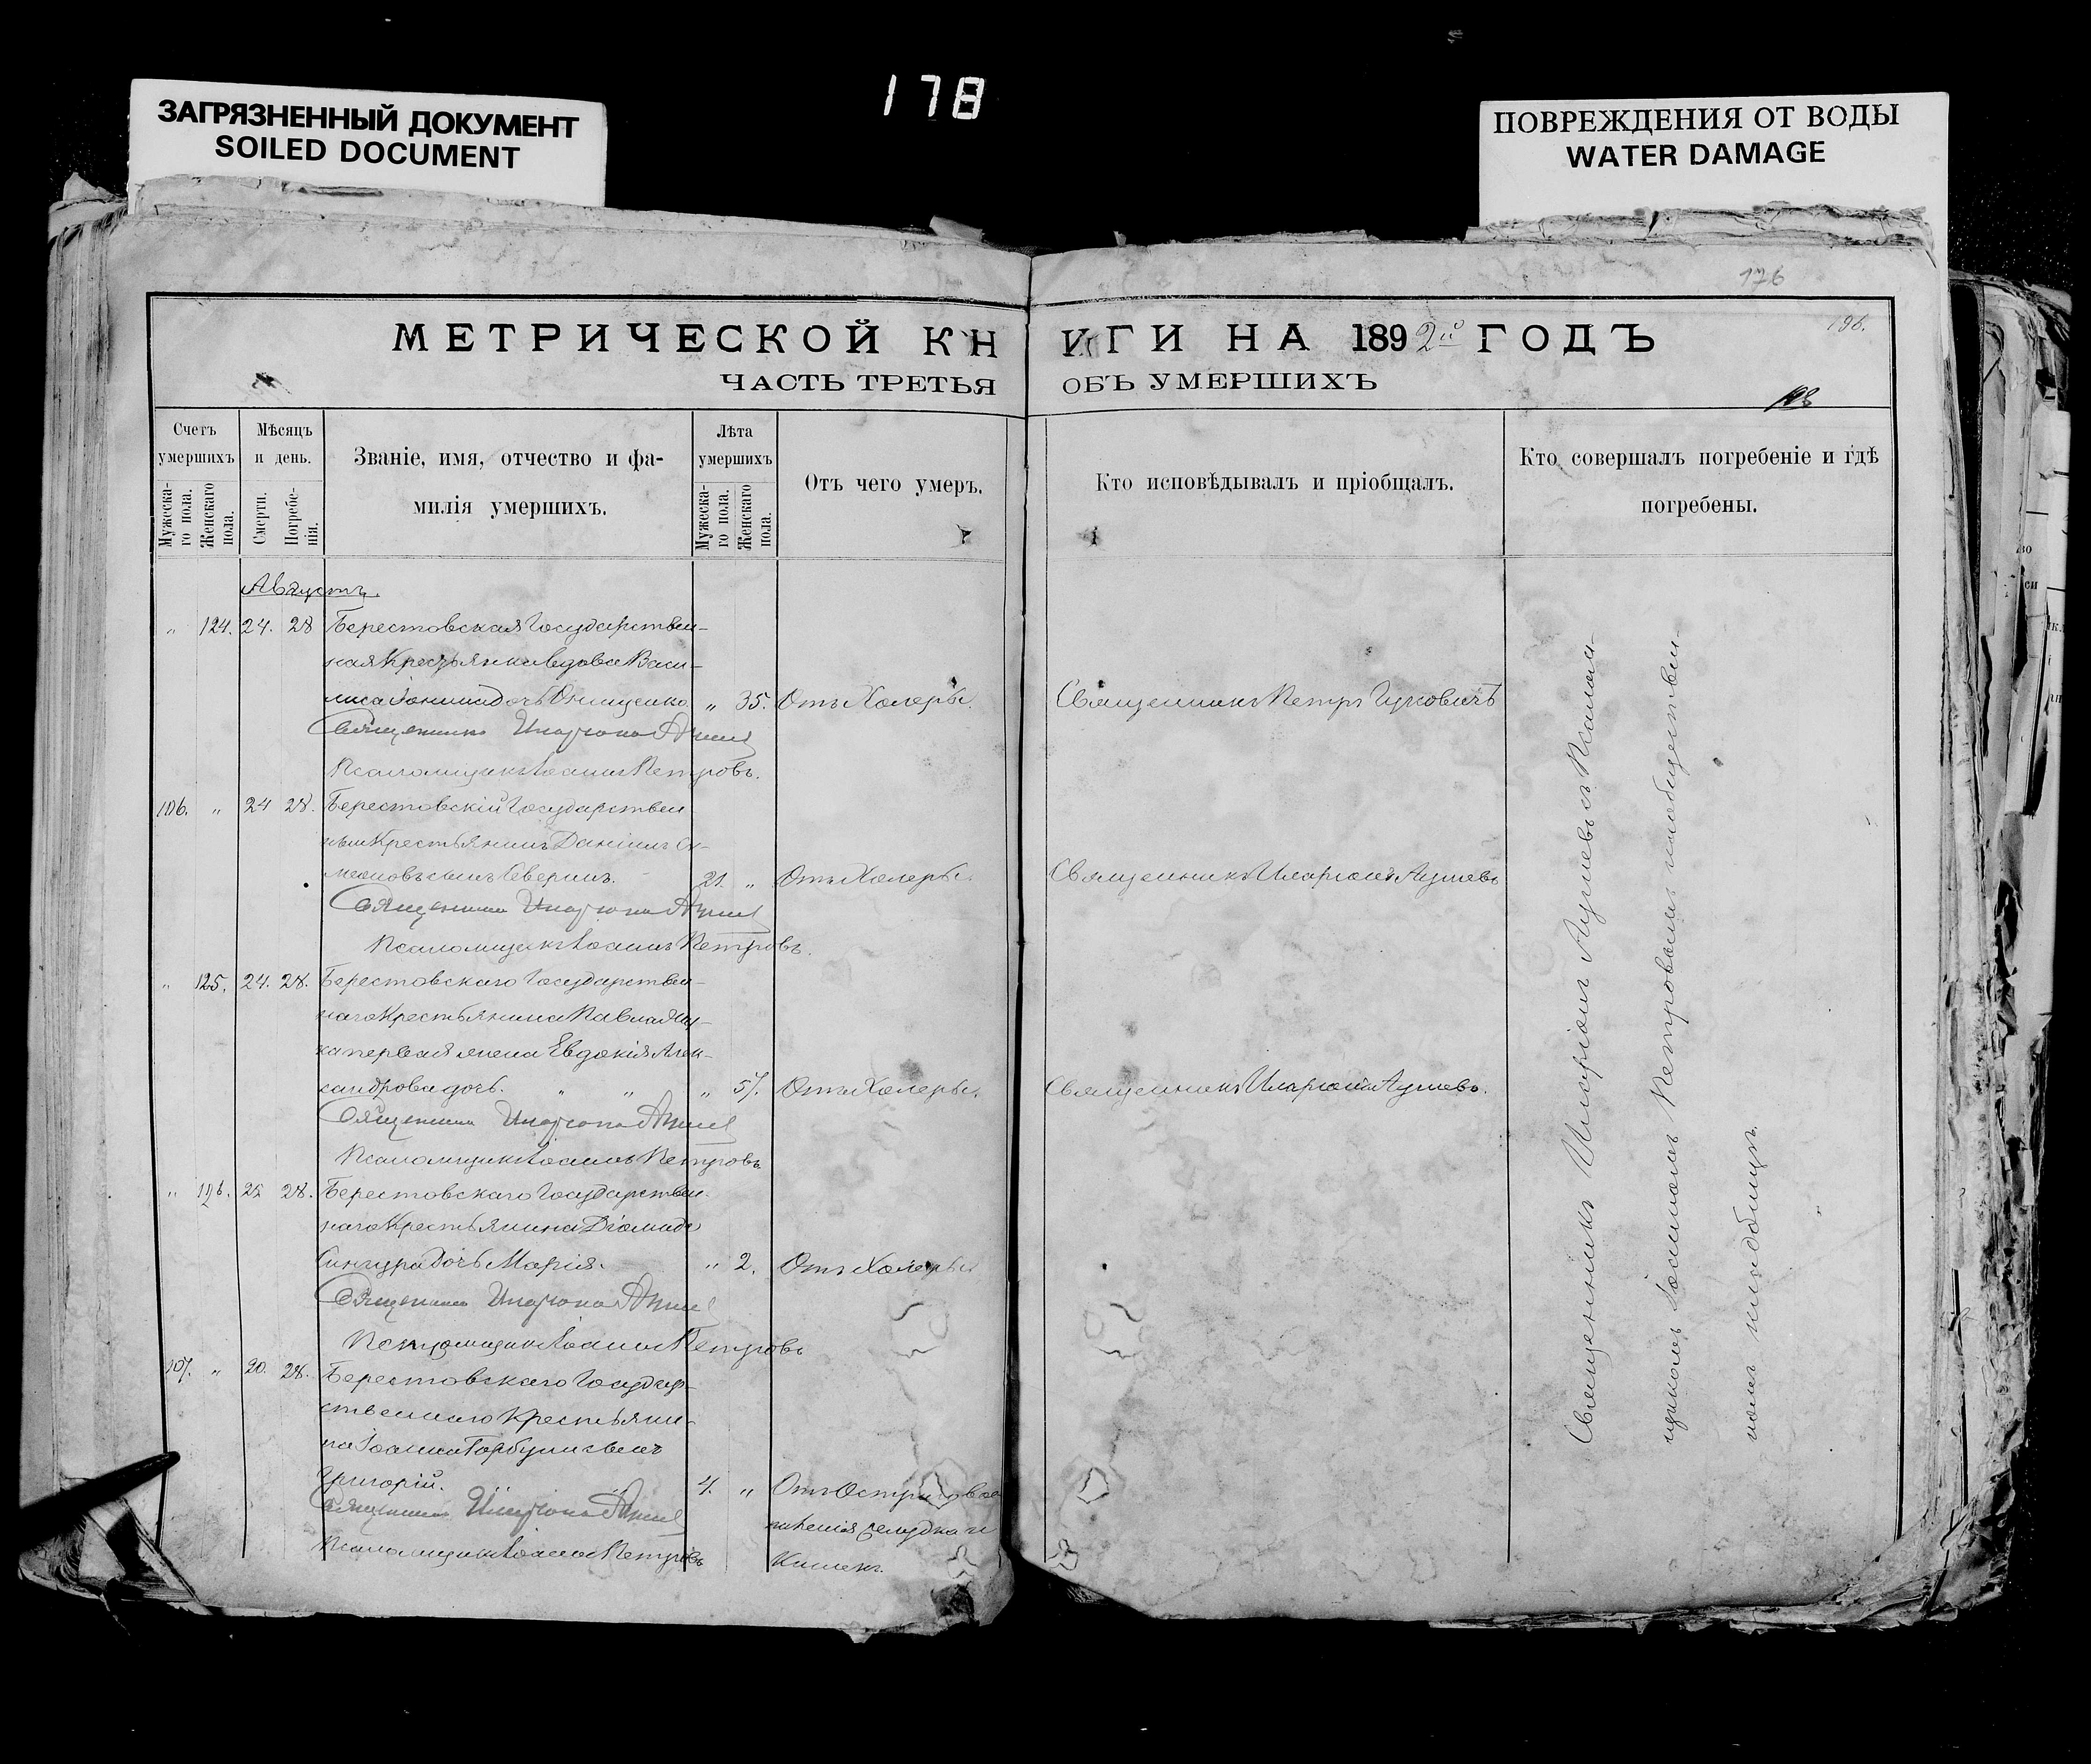 178
ЗАГРЯЗНЕННЫЙ ДОКУМЕНТ
SOILED DOCUMENT
ПОВРЕЖДЕНИЯ ОТ ВОДЫ
WATER DAMAGE
176
196.
МЕТРИЧЕСКОЙ КНИГИ НА 1892й ГОДЪ
ЧАСТЬ ТРЕТЬЯ ОБЪ УМЕРШИХЪ
Счетъ умершихъ.
Мужескаго пола.
Женскаго пола.
Мѣсяцъ и день.
Смерти.
Погребенія.
Званіе, имя, отчество и фа-
милія умершихъ.
Лѣта умершихъ
Мужескаго пола.
Женскаго пола.
Отъ чего умеръ.
Кто исповѣдывалъ и пріобщалъ.
Кто совершалъ погребеніе и гдѣ
погребены.
Августъ.
„ 124. 24. 28 Берестовская Государствен-
ная Крестьянка вдова Васи-
лиса Іоанна дочь Онищенко „ 35. Отъ Холеры. Священникъ Петръ
Священникъ Иларіонъ
Псаломщикъ Іоаннъ Петровъ.
106. „ 24 28. Берестовскій Государствен
ный Крестьянинъ Даніилъ Си-
меоновъ сынъ Северинъ. 21. „ Отъ Холеры. Священникъ Иларіонъ
Священникъ Иларіонъ
Псаломщикъ Іоаннъ Петровъ.
„ 125. 24. 28. Берестовскаго Государствен-
наго Крестьянина Павла
первая жена Евдокія Алек-
сандрова дочь. „ „ „ 57. Отъ Холеры. Священникъ Иларіонъ
Священникъ Иларіонъ
Псаломщикъ Іоаннъ Петровъ
„ 126. 25 28. Берестовскаго Государствен-
наго Крестьянина Діомида
Сингура дочь Марія. „ 2. Отъ Холеры
Священникъ Иларіонъ
Псаломщикъ Іоаннъ Петровъ
107. „ 20. 28. Берестовскаго Государ-
ственнаго Крестьяни-
на Іоанна сынъ
Григорій. 4. „ Отъ Остраго вос
Священникъ Иларіонъ
паленія желудка и
Псаломщикъ Іоаннъ Петровъ
Кишекъ.
Священникъ Иларіонъ съ Псалом-
щикомъ Іоанномъ Петровымъ на обществен
номъ кладбищѣ.